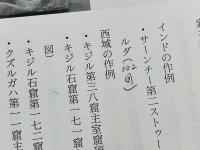 インドの作例
・サーンチー第二ストゥー
ルダ（102図）
西域の作例
・キジル第三八窟主室窟
・キジル石窟第一七一窟
図）
・キジル石窟第一七二窟
・クズルガハ第一一窟主